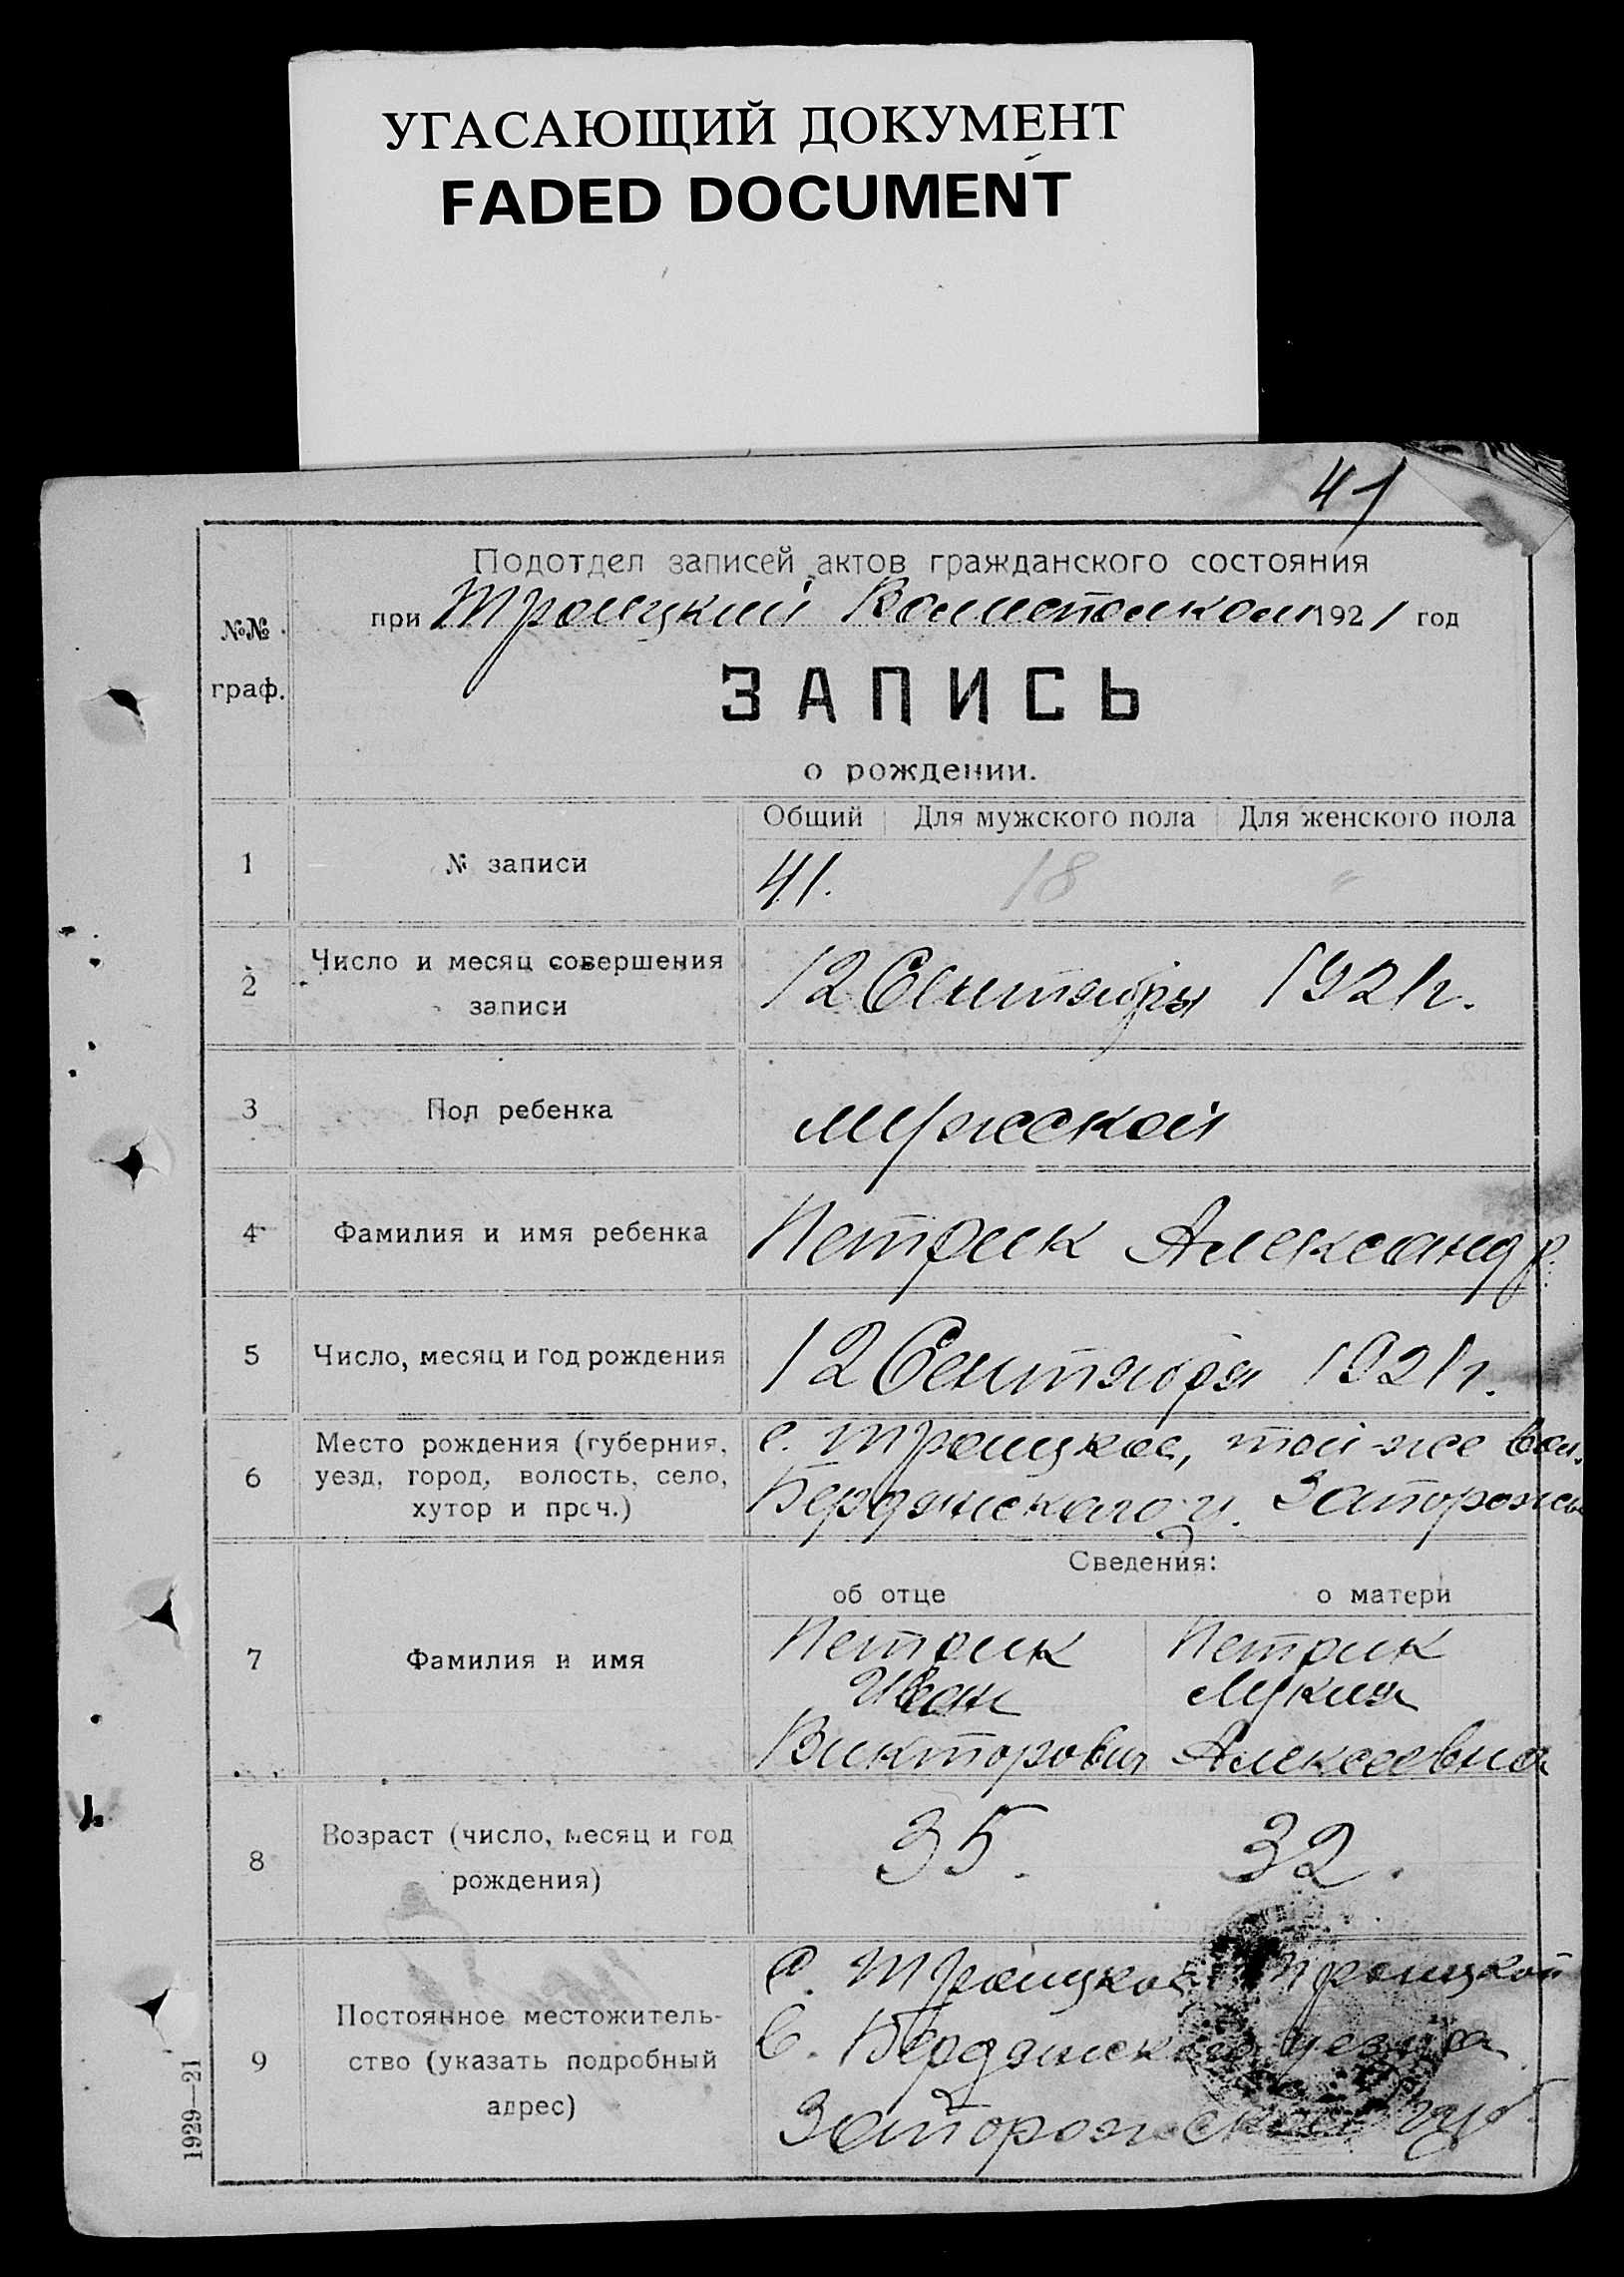 УГАСАЮЩИЙ ДОКУМЕНТ
FADED DOCUMENT
41
Подотдел записей актов гражданского состояния
при Троицкий Волисполком 1921 год
№№
граф.
ЗАПИСЬ
о рождении.
Общий Для мужского пола Для женского пола
1 № записи 41. 18 "
2 Число и месяц совершения
записи
12 Сентября 1921 г.
3 Пол ребенка мужской
4 Фамилия и имя ребенка Петрик Александр.
5 Число, месяц и год рождения 12 Сентября 1921 г.
6 Место рождения (губерния,
уезд, город, волость, село,
хутор и проч.)
с. Троицкое, той-же вол.
Бердянскаго у. Запорожс
Сведения:
об отце о матери
7 Фамилия и имя
Петрик Петрик
Иван
Викторович Алексеевна
8 Возраст (число, месяц и год
рождения)
35. 32.
9 Постоянное местожитель-
ство (указать подробный
адрес)
с. Троицкое Троицкой
в. Бердянскаго уезда
Запорожской губ.
1929—21